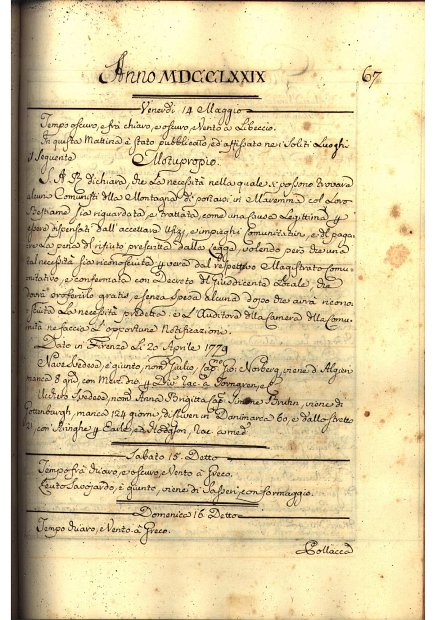 Anno MDCCLXXIX 67
Venerdì 14 Maggio
Tempo oscuro, e frà chiaro, e oscuro, e Vento à Libeccio.
In questa Mattina è stato pubblicato, ed affissato nei Soliti Luoghi
il seguente Motuproprio.
S. A. R. dichiara, che La necessità nella quale si possono trovare
alcuni Comunisti della Montagna di portarsi in Maremma col Loro
Bestiame sia riguardata e trattata come una scusa Legittima p
essere dispensati dall' accettare Ufizi, e impieghi Comunitativi, e di paga-
re La pena del rifiuto prescritta dalla Legge, volendo però che una
tal necessità sia riconosciuta p vera dal respettivo Magistrato Comu-
nitativo, e confermata con Decreto del Giusdicente Locale, che
dovrà proferirlo gratis, e senza spesa alcuna dopo che avrà ricono-
sciuta La necessità predetta, e L'Auditore della Camera delle Comu-
nità ne faccia L'opportune Notificazioni.
Dato in Firenze Li 20 Aprile 1779
Nave Svedese, è giunto, nom. Giulio, Cap. Gio: Norberg, viene d'Algeri
manca 8 gni, con
Uchero Svedese, nom. Anna Brigitta Cap. Simone Bruhn, viene di
Gottenburgh, manca 124 giorni, di Haven in Danimarca 60, e dallo stretto
con Aringhe p Earle, ed Hodgson, Rac. a med.
Sabato 15 Detto
Tempo frà chiaro, e oscuro, e Vento à Greco.
Leuto Savojardo, è giunto, viene di Sasseri, con formaggio.
Domenica 16 Detto
Tempo chiaro, e Vento à Greco.
Pollacca